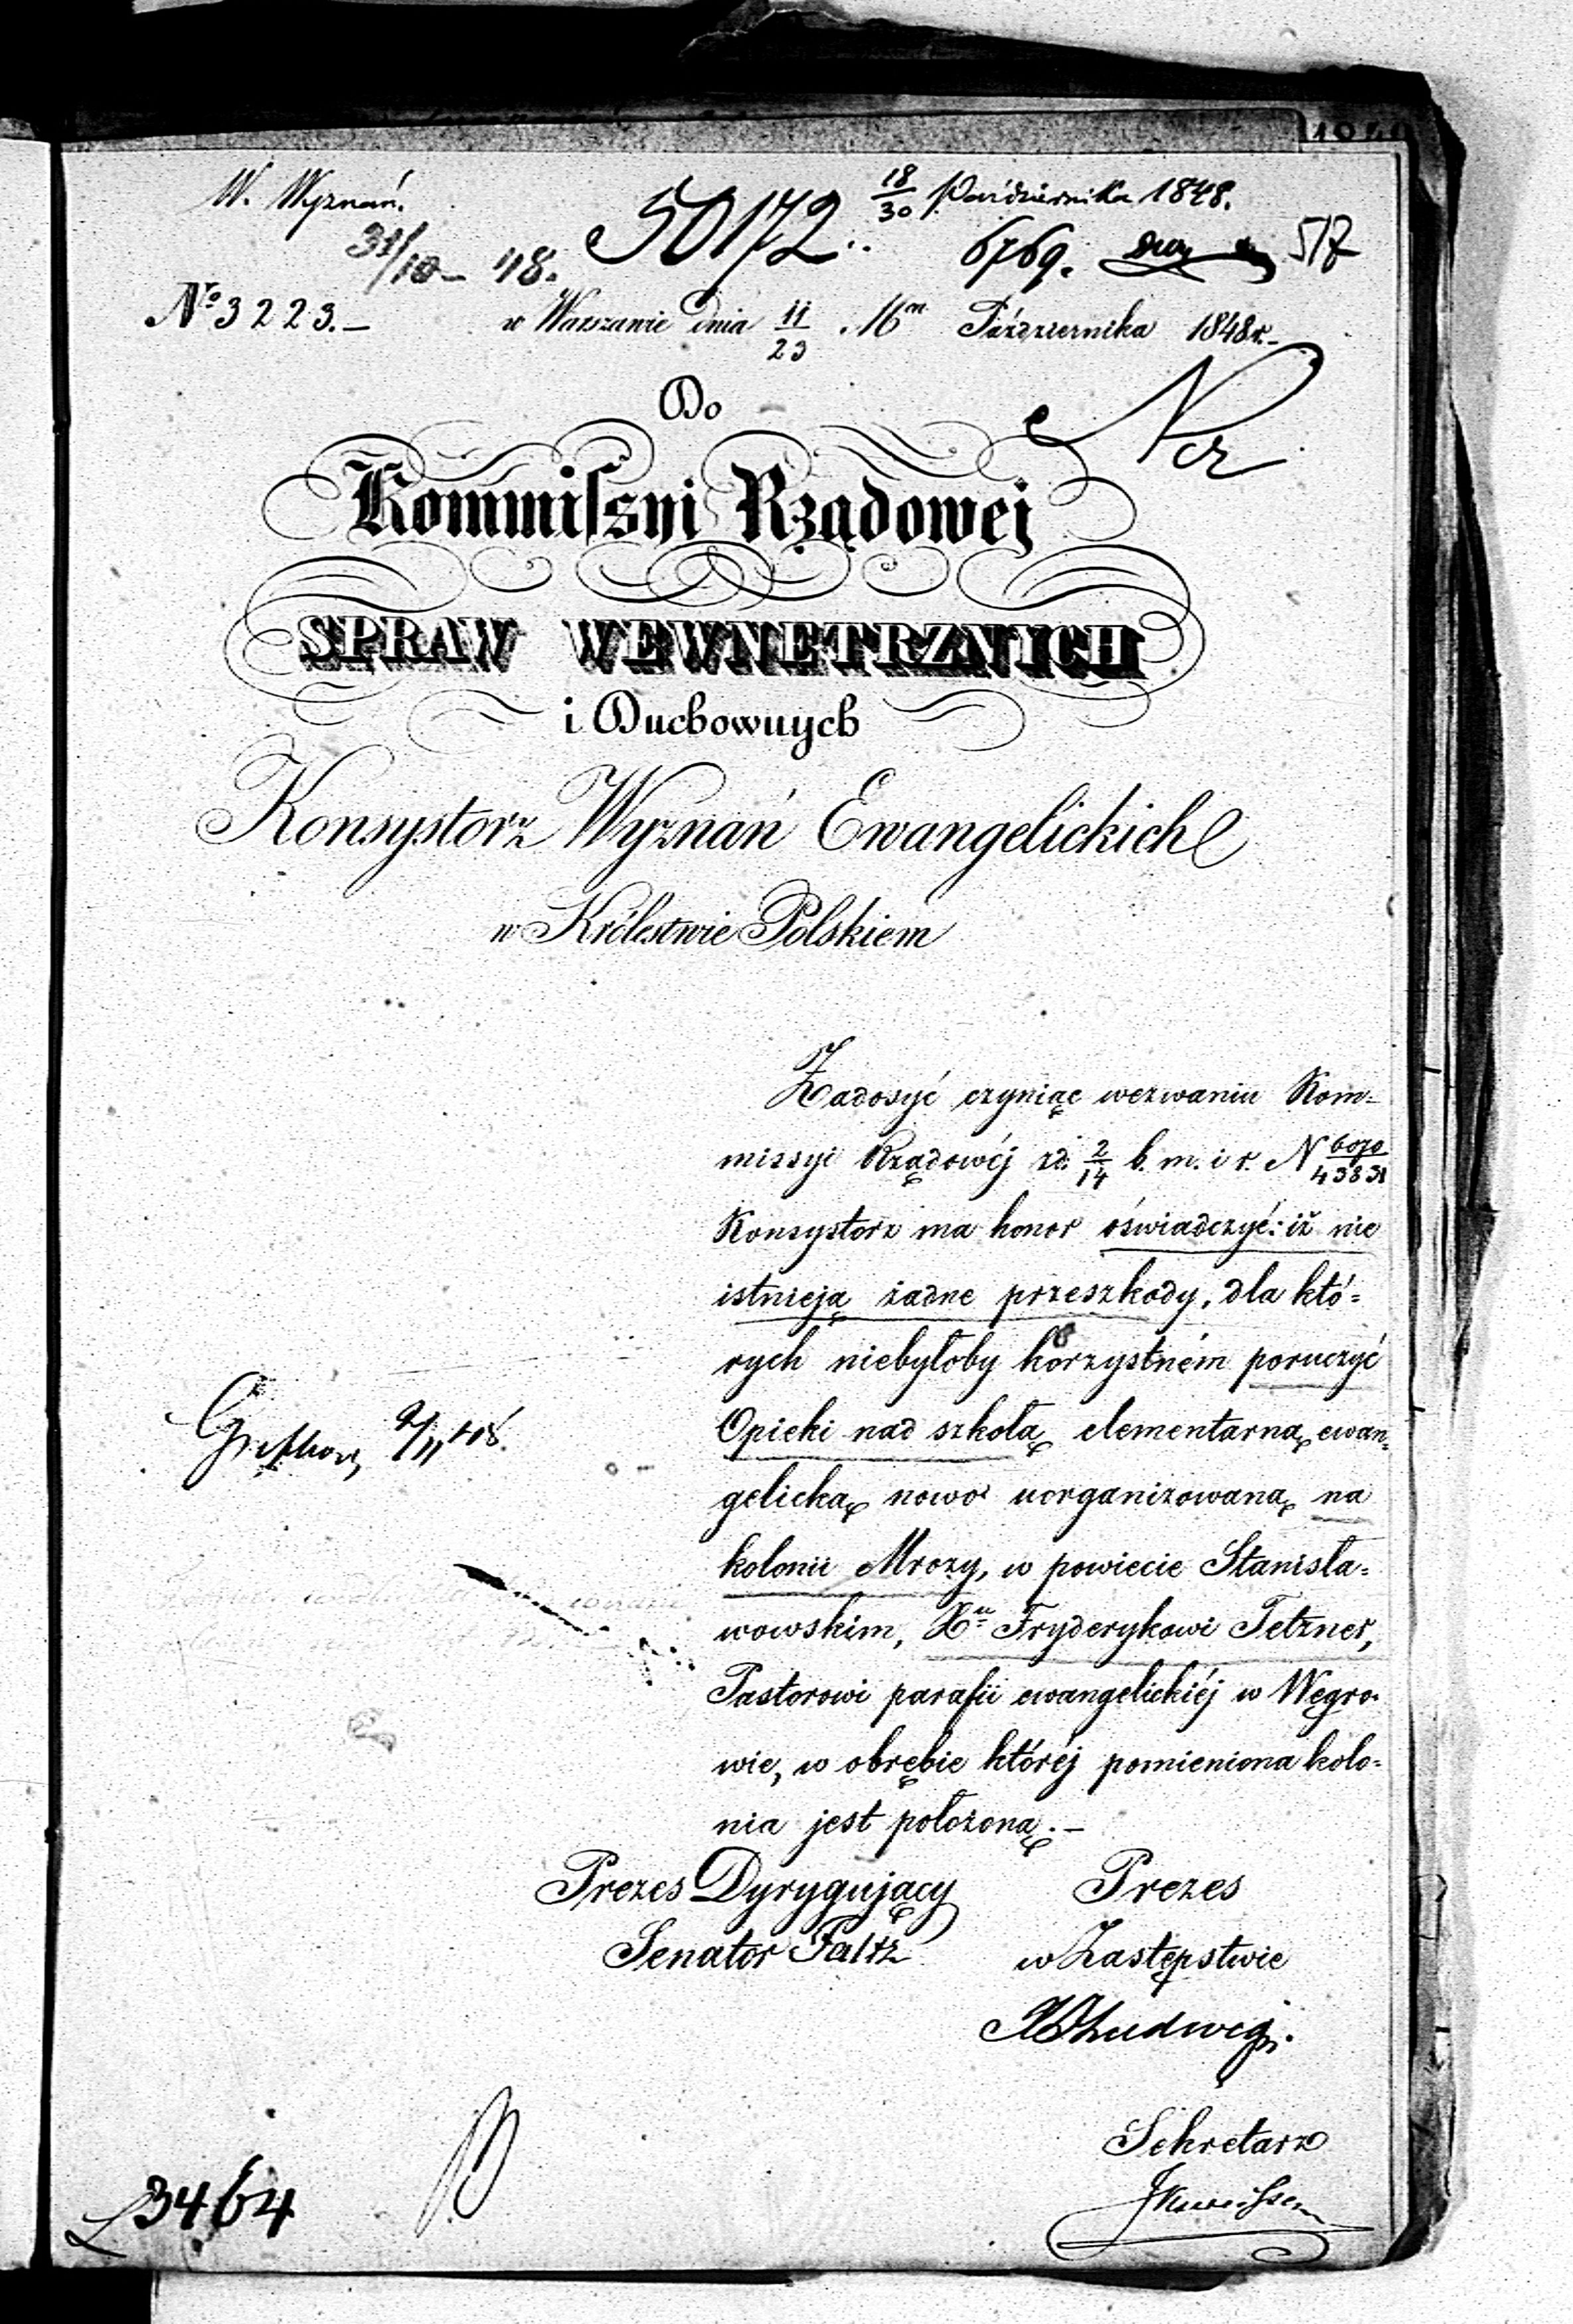 W. Wyznań.
50172.
18/30 Października 1848.
31/10 – 48.
6769.
517
No 3223.–
w Warszawie dnia 11/23 Mca Października 1848r.–
Do
Kommissyi Rządowej
SPRAW WEWNETRZNYCH
i Duchownych
Konsystorz Wyznań Ewangelickich
w Królestwie Polskiem
Zadosyć czyniąc wezwaniu Kom=
missyi Rządowéj zd. 2/14 b. m. i r. N 6070/43831
Konsystorz ma honor oświadczyć: iż nie
istnieją żadne przeszkody, dla któ=
rych niebyłoby korzystném poruczyć
Opieki nad szkołą elementarną ewan=
gelicką nowo uorganizowaną na
kolonii Mrozy, w powiecie Stanisła=
wowskim, Xu Fryderykowi Tetzner,
Pastorowi parafii ewangelickiéj w Węgro=
wie, w obrębie któréj pomieniona kolo=
nia jest położoną.–
2/11 48.
Prezes Dyrygujący
Senator Faltz
Prezes
w Zastępstwie
Ludwig.
Sekretarz
3464